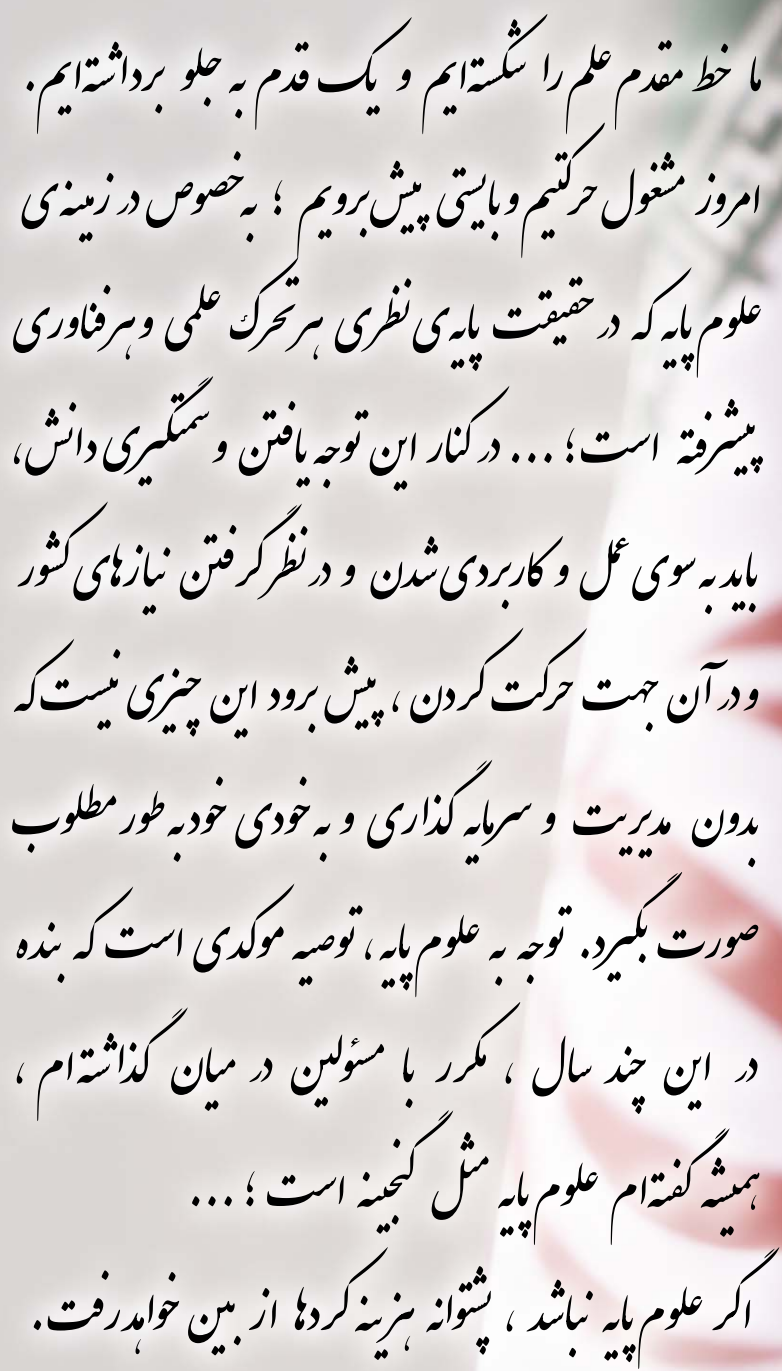 ما خط مقدم علم را شکسته‌ایم و یک قدم به جلو برداشته‌ایم.
امروز مشغول حرکتیم و بایستی پیش برویم ؛ به خصوص در زمینه‌ی
علوم پایه که در حقیقت پایه‌ی نظری هر تحرک علمی و هر فناوری
پیشرفته است؛ ... در کنار این توجه یافتن و سمتگیری دانش،
باید به سوی عمل و کاربردی شدن و در نظر گرفتن نیازهای کشور
و در آن جهت حرکت کردن ، پیش برود این چیزی نیست که
بدون مدیریت و سرمایه گذاری و به خودی خود به طور مطلوب
صورت بگیرد. توجه به علوم پایه، توصیه موکدی است که بنده
در این چند سال ، مکرر با مسئولین در میان گذاشته‌ام ،
همیشه گفته‌ام علوم پایه مثل گنجینه است ؛ ...
اگر علوم پایه نباشد ، پشتوانه هزینه کردها از بین خواهد رفت.